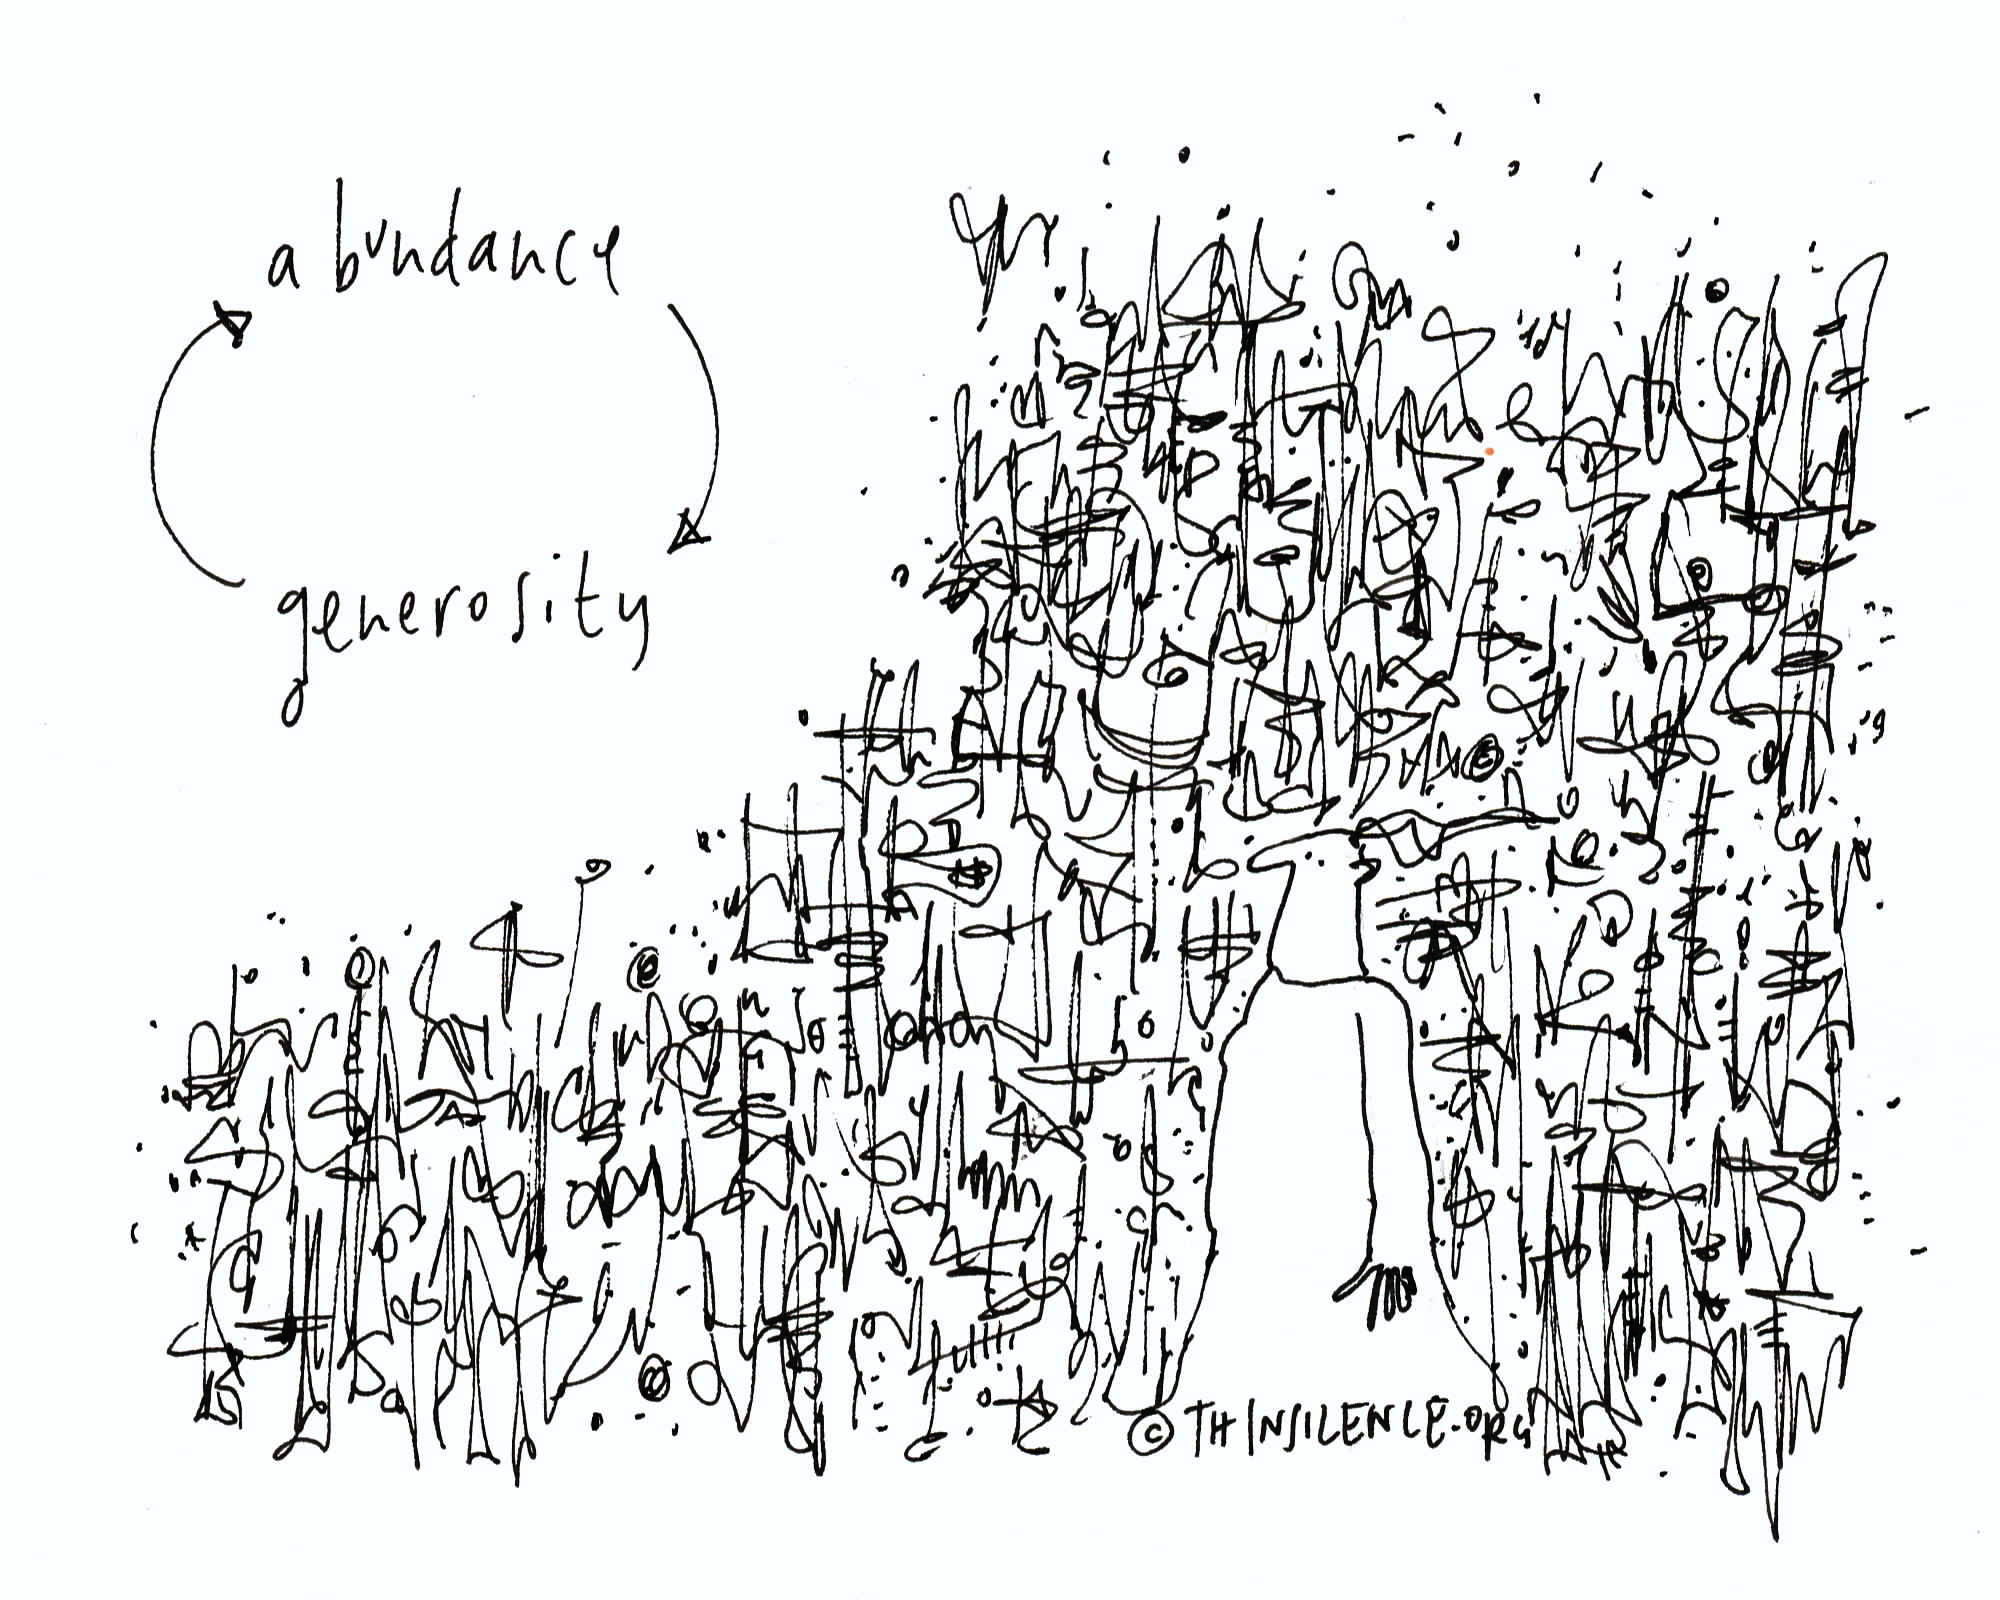 abundance
generosity
© THINSILENCE.ORG